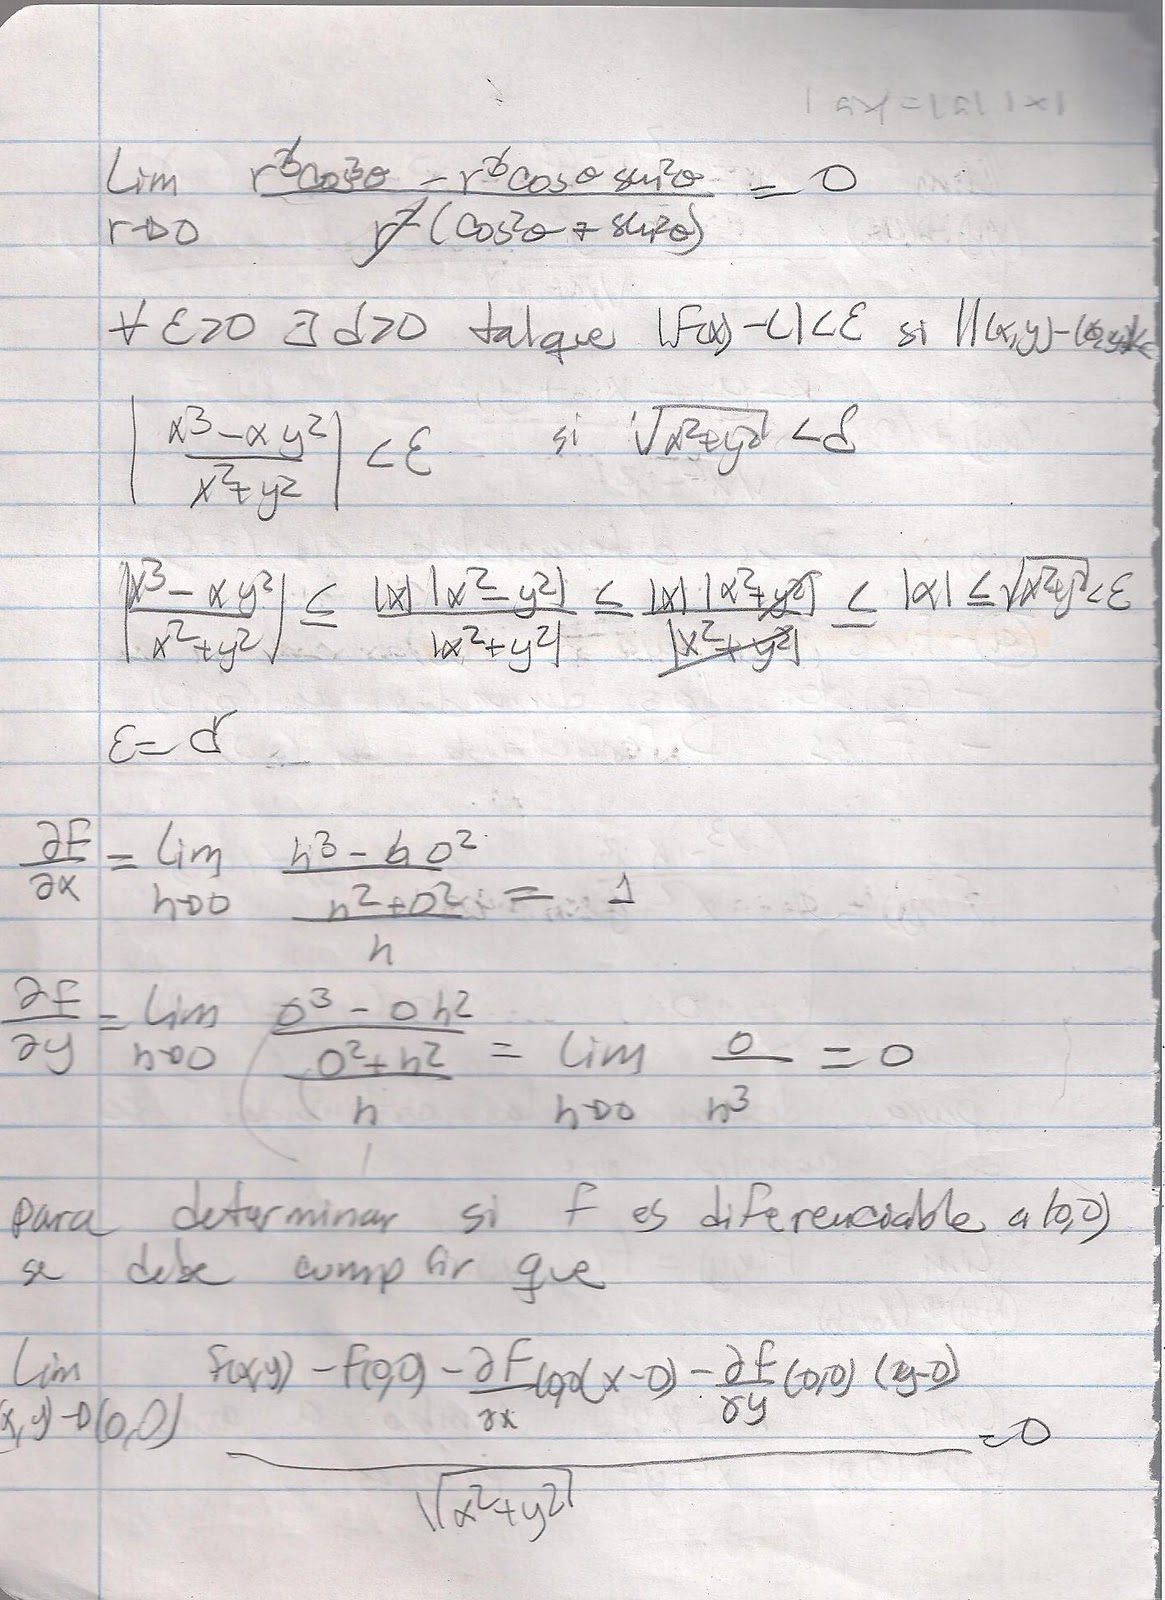 |x| |a| = |xa|
Lim r→0 (r³cos³θ − r³cosθ sen²θ) / (r²(cos²θ + sen²θ)) = 0
∀ ε>0 ∃ d>0 talque |F(x) − L| < ε si ||(x,y) −
|(x³ − xy²) / (x² + y²)| < ε si √(x²+y²) < d
|x³ − xy²| / |x² + y²| ≤ |x| |x² − y²| / |x² + y²| ≤ |x| |x² + y²| / |x² + y²| ≤ |x| ≤ √(x²+y²) < ε
ε = d
∂F/∂x = Lim h→0 ((h³ − h0²) / (h² + 0²)) / h = 1
∂F/∂y = Lim h→0 ((0³ − 0h²) / (0² + h²)) / h = Lim h→0 0/h³ = 0
para determinar si f es diferenciable a (0,0)
se debe cumplir que
Lim (x,y)→(0,0) (f(x,y) − f(0,0) − ∂F/∂x (0,0)(x−0) − ∂f/∂y (0,0) (y−0)) / √(x²+y²) = 0